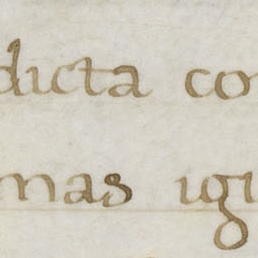 dicta co
mas igi